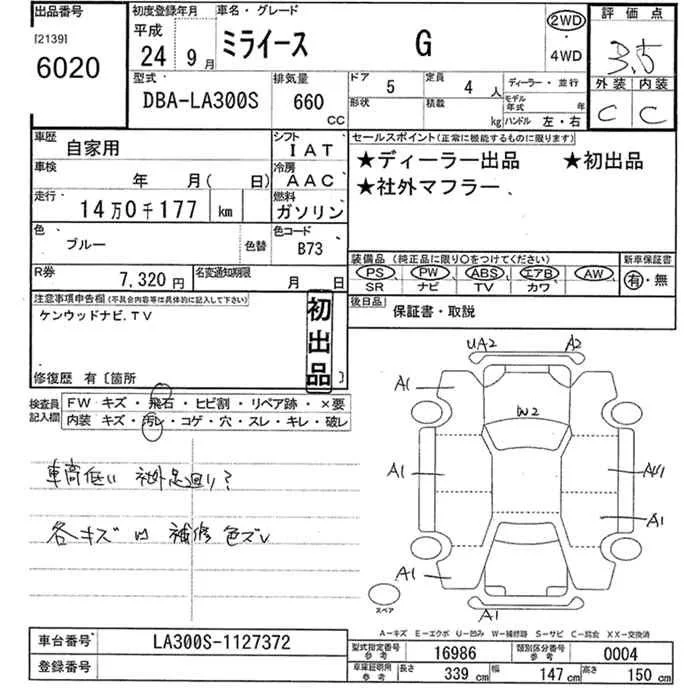 出品番号
[2139]
6020
初度登録年月
平成
24年
9月
車名・グレード
ミライース G
2WD
4WD
評価点
3.5
外装 内装
C C
型式
DBA-LA300S
排気量
660 CC
ドア 5
定員 4人
ディーラー・並行
形状
積載 kg
モデル年式 年
ハンドル 左・右
車歴
自家用
シフト
IAT
車検
年 月( 日)
冷房
AAC
走行
14万0千177 km
燃料
ガソリン
色
ブルー
色替
色コード
B73
R券
7,320円
名変通知期限
月 日
セールスポイント(正常に機能するものに限ります)
★ディーラー出品 ★初出品
★社外マフラー、
装備品(純正品に限り○をつけてください)
新車保証書
PS PW ABS エアB AW
SR ナビ TV カワ
有・無
後日品
保証書・取説
注意事項申告欄(不具合内容等は具体的に記入して下さい)
ケンウッドナビ、TV
初出品
修復歴 有〔箇所 〕
検査員記入欄
FW キズ・飛石・ヒビ割・リペア跡・×要
内装 キズ・汚レ・コゲ・穴・スレ・キレ・破レ
車高低い 社外足廻り?
各キズ凹 補修 色ズレ
UA2 A2
A1
W2
A1
A1
A1
A1
A1
スペア
A-キズ E-エクボ U-凹み W-補修跡 S-サビ C-腐食 XX-交換済
車台番号
LA300S-1127372
登録番号
型式指定番号 参考
16986
類別区分番号 参考
0004
車庫証明用 参考
長さ 339 cm
幅 147 cm
高さ 150 cm